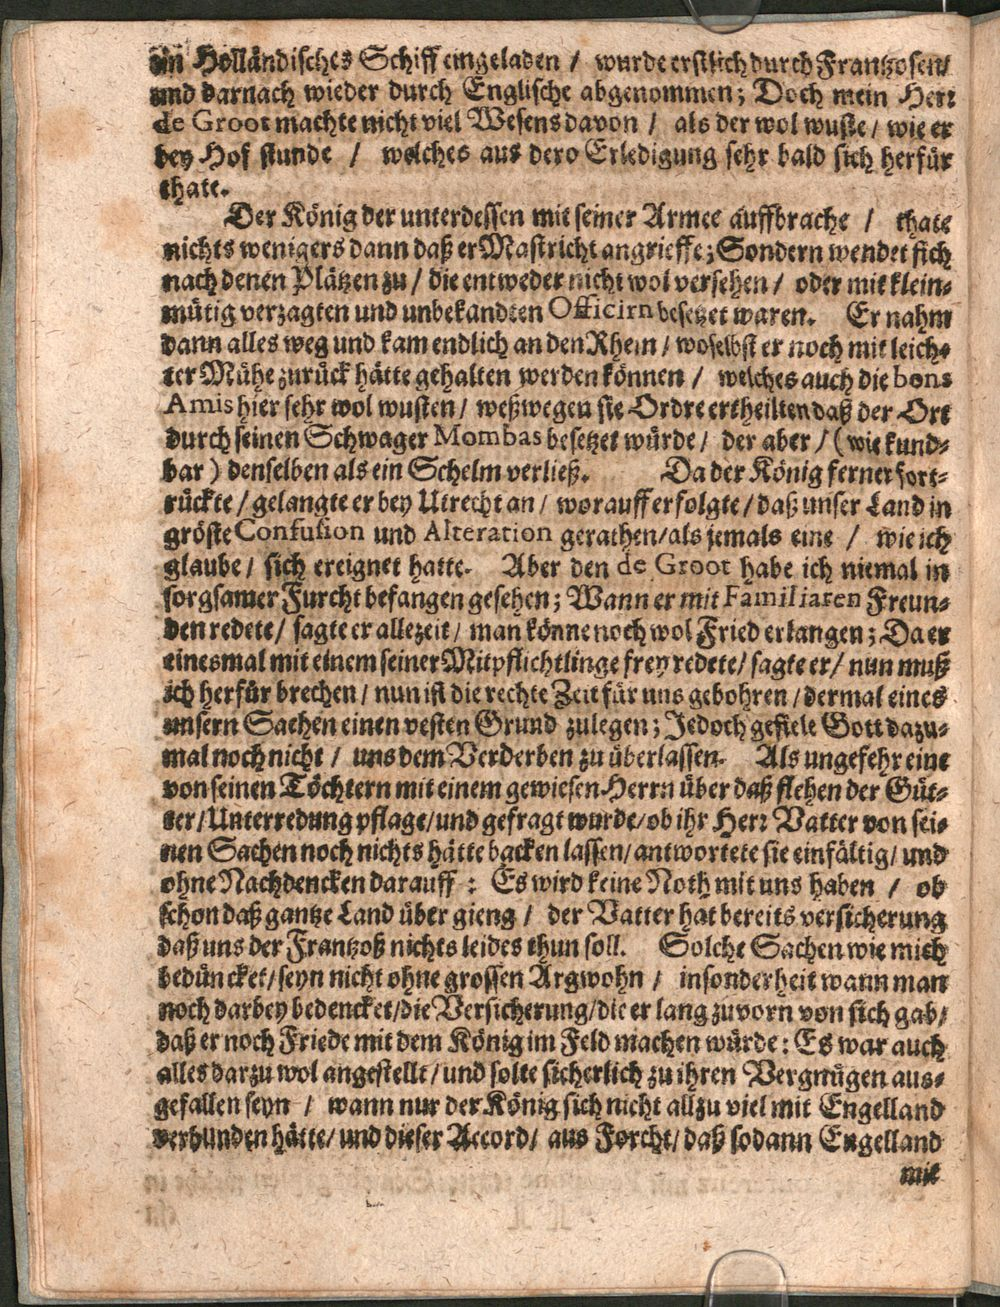 ein Holländisches Schiff eingeladen / wurde erstlich durch Frantzosen/
und darnach wieder durch Englische abgenommen; Doch mein Herr
de Groot machte nicht viel Wesens davon / als der wol wuste / wie er
bey Hof stunde / welches aus dero Erledigung sehr bald sich herfür
thate.
Der König der unterdessen mit seiner Armee auffbrache / thate
nichts wenigers dann daß er Mastricht angrieffe; Sondern wendet sich
nach denen Plätzen zu / die entweder nicht wol versehen / oder mit klein-
mütig verzagten und unbekandten Officirn besetzet waren. Er nahm
dann alles weg und kam endlich an den Rhein / woselbst er noch mit leich-
ter Mühe zurück hätte gehalten werden können / welches auch die bons
Amis hier sehr wol wusten / weßwegen sie Ordre ertheilten daß der Ort
durch seinen Schwager Mombas besetzet würde / der aber / (wie kund-
bar) denselben als ein Schelm verließ. Da der König ferner fort-
rückte / gelangte er bey Utrecht an / worauff erfolgte / daß unser Land in
gröste Confusion und Alteration gerathen/als jemals eine / wie ich
glaube / sich ereignet hatte. Aber den de Groot habe ich niemal in
sorgsamer Furcht befangen gesehen; Wann er mit Familiaren Freun-
den redete / sagte er allezeit / man könne noch wol Fried erlangen; Da er
einesmal mit einem seiner Mitpflichtlinge frey redete / sagte er / nun muß
ich herfür brechen / nun ist die rechte Zeit für uns gebohren / dermal eines
unsern Sachen einen vesten Grund zulegen; Jedoch gefiele Gott dazu-
mal noch nicht / uns dem Verderben zu überlassen. Als ungefehr eine
von seinen Töchtern mit einem gewiesen Herrn über daß flehen der Güt-
ter/Unterredung pflage/und gefragt wurde/ob ihr Herr Vatter von sei-
nen Sachen noch nichts hätte backen lassen/antwortete sie einfältig / und
ohne Nachdencken darauff : Es wird keine Noth mit uns haben / ob
schon daß gantze Land über gieng / der Vatter hat bereits versicherung
daß uns der Frantzoß nichts leides thun soll. Solche Sachen wie mich
bedüncket/seyn nicht ohne grossen Argwohn / insonderheit wann man
noch darbey bedencket/die Versicherung/die er lang zuvorn von sich gab/
daß er noch Friede mit dem König im Feld machen würde: Es war auch
alles darzu wol angestellt / und solte sicherlich zu ihren Vergnügen aus-
gefallen seyn / wann nur der König sich nicht allzu viel mit Engelland
verbunden hätte/ und dieser Accord/ aus Forcht/ daß sodann Engelland
mit